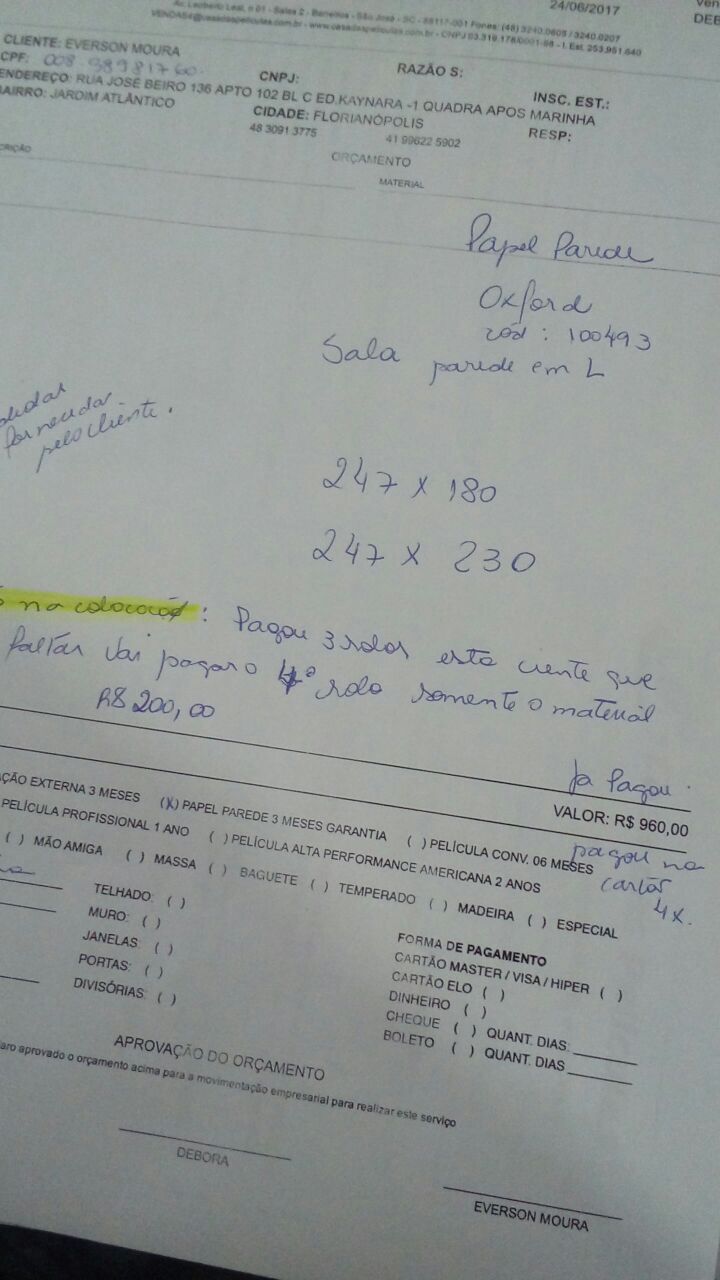 24/06/2017
Ac. Lauberto Leal, n 01 - Salas 2 - Barreiros - São José - SC - 88117-001 Fones: (48) 3240.0605 / 3240.0207
DEB
CLIENTE: EVERSON MOURA
CPF: 008 989817 60.
CNPJ:
RAZÃO S:
INSC. EST.:
ENDEREÇO: RUA JOSÉ BEIRO 136 APTO 102 BL C ED.KAYNARA -1 QUADRA APOS MARINHA
BAIRRO: JARDIM ATLÂNTICO
CIDADE: FLORIANÓPOLIS
RESP:
48 3091 3775
41 99622 5902
ORÇAMENTO
MATERIAL
Papel Parede
Oxford
cód : 100493
Sala parede em L
pelo cliente.
247 x 180
247 x 230
na colocação: Pagou 3 rolos esta ciente que
faltar vai pagar o 4º rolo somente o material
R$ 200,00
Ja Pagou.
VALOR: R$ 960,00
pagou no
cartão
4x.
AÇÃO EXTERNA 3 MESES (X) PAPEL PAREDE 3 MESES GARANTIA ( ) PELÍCULA CONV. 06 MESES
PELÍCULA PROFISSIONAL 1 ANO ( ) PELÍCULA ALTA PERFORMANCE AMERICANA 2 ANOS
( ) MÃO AMIGA ( ) MASSA ( ) BAGUETE ( ) TEMPERADO ( ) MADEIRA ( ) ESPECIAL
TELHADO: ( )
MURO: ( )
JANELAS: ( )
PORTAS: ( )
DIVISÓRIAS: ( )
FORMA DE PAGAMENTO
CARTÃO MASTER / VISA / HIPER ( )
CARTÃO ELO ( )
DINHEIRO ( )
CHEQUE ( ) QUANT. DIAS:
BOLETO ( ) QUANT. DIAS
APROVAÇÃO DO ORÇAMENTO
aro aprovado o orçamento acima para a movimentação empresarial para realizar este serviço
DEBORA
EVERSON MOURA